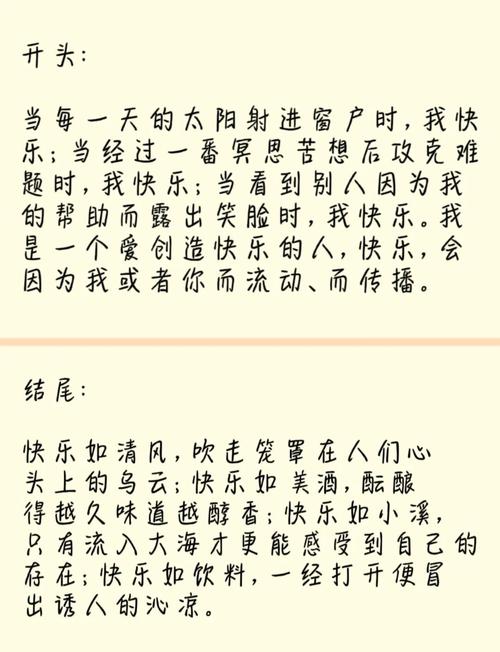 开头:
当每一天的太阳射进窗户时,我快
乐;当经过一番冥思苦想后攻克难
题时,我快乐;当看到别人因为我
的帮助而露出笑脸时,我快乐。我
是一个爱创造快乐的人,快乐,会
因为我或者你而流动、而传播。
结尾:
快乐如清风,吹走笼罩在人们心
头上的乌云;快乐如美酒,酝酿
得越久味道越醇香;快乐如小溪,
只有流入大海才更能感受到自己的
存在;快乐如饮料,一经打开便冒
出诱人的沁凉。